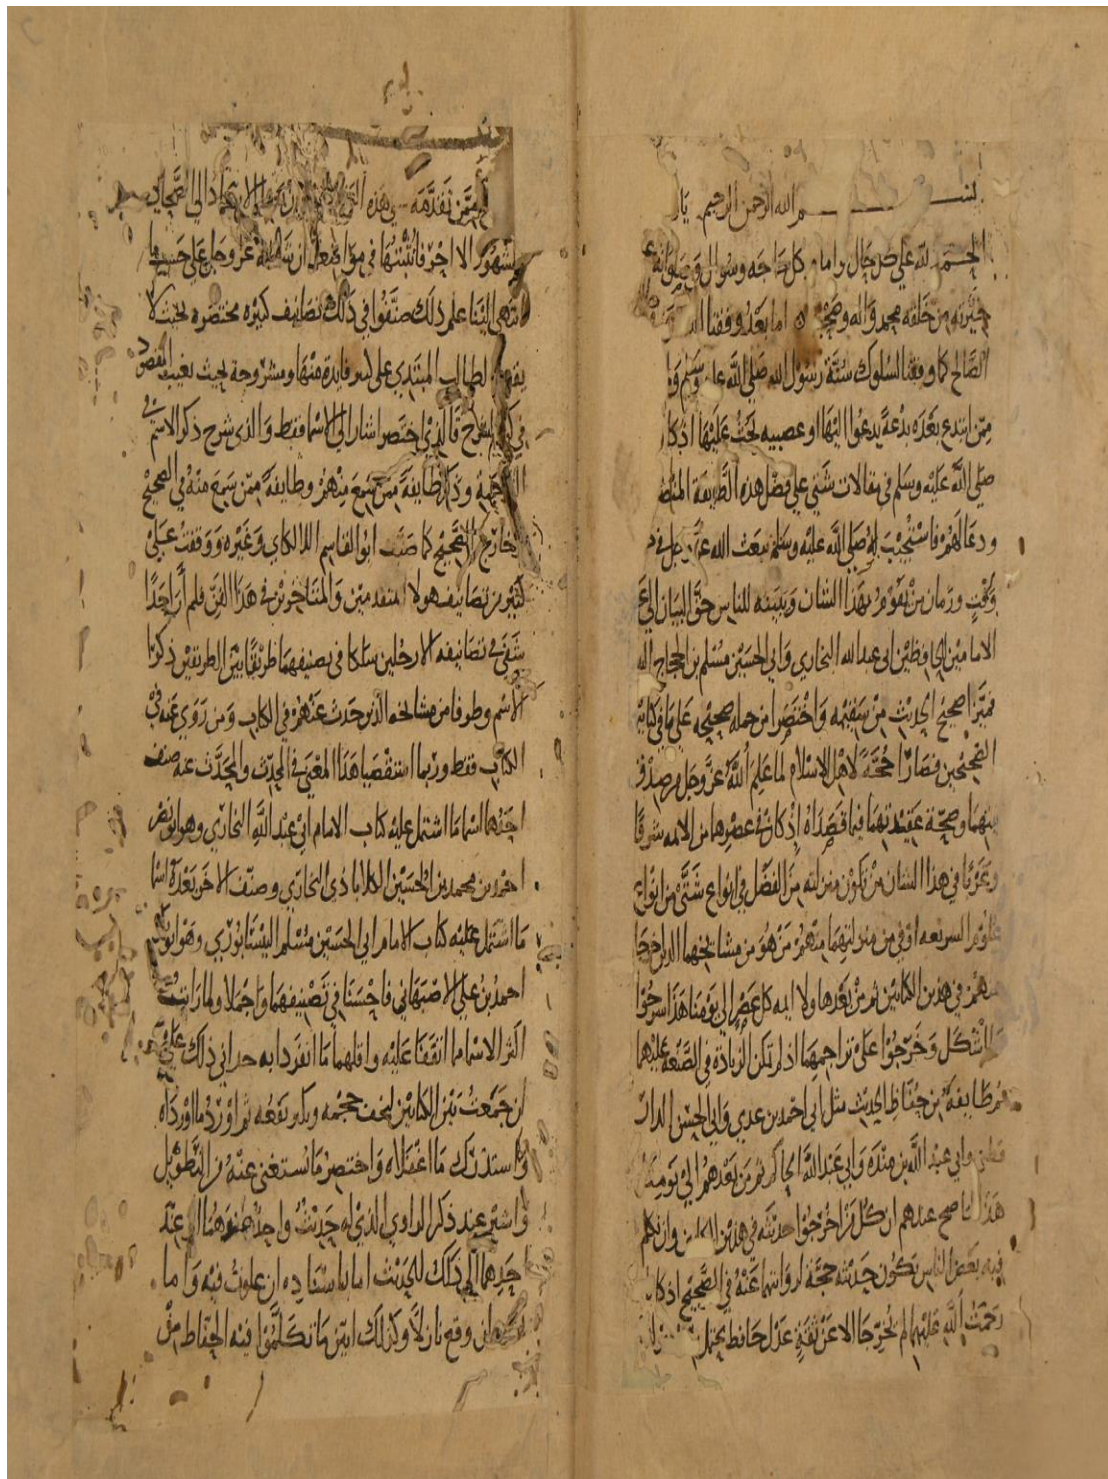 بسم الله الرحمن الرحيم
الحمد لله على كل حال واما كل حاجه وسوال وصلواته على
خيرته من خلقه محمد واله وصحبه اما بعد وفقنا الله
الصالح كما وفقنا لسلوك سنة رسول الله صلى الله عليه وسلم
ممن ابتدع بعده بدعة يدعوا اليها او عصبيه يحث عليها اذ كان
صلى الله عليه وسلم في مقالات شتى على فضل هذه الطريقة
ودعا لهم فاستجيب له صلى الله عليه وسلم يبعث الله عز وجل في
وقت وزمان من يقوم بهذا الشان ويبينه للناس حق البيان الى
الامامين الحافظين ابي عبد الله البخاري وابي الحسين مسلم بن الحجاج
فميزا صحيح الحديث من سقيمه واختصرا من جمله صحيحه على ما في كتابي
الصحيحين فصارا حجة لاهل الاسلام لما علم الله عز وجل من صدق
منهما وصحة عقيدتهما فيما قصداه اذ كان في عصرهما من الايمه شرقا
وغربا في هذا الشان من تكون منزلته من الفضل في انواع شتى من انواع
علوم الشريعه اوفى من منزلتهما منهم من هو من مشايخهما الذين اخرجا
عنهم في هذين الكتابين ثم من بعدها ولا ايمه كل عصر الى يومنا هذا شرحوا
ما اشكل وخرجوا على تراجمهما اذ لم تكن الزيادة في الصنعة عليهما
ثم طايفة من حفاظ الحديث مثل ابي احمد بن عدي وابي الحسن الدار
قطني وابي عبد الله بن منده وابي عبد الله الحاكم ثم من بعدهم الى يومنا
هذا لما صح عندهم ان كل من اخرجوا حديثه في هذين الكتابين وان تكلم
فيه بعض الناس يكون حديثه حجة لروايتهما عنه في الصحيح اذ كانا
رحمت الله عليهما لم يخرجا الا عن ثقة عدل حافظ يحتمل
ممن تقدمه في هذه الى الصحابي
المشهور الا احرفا نثبتها في مواضعها ان شا الله عز وجل على حسب ما
انتهى الينا علم ذلك صنفوا في ذلك تصانيف كبيره مختصره بحيث لا
للطالب المبتدي على كبير فايدة منها ومشروحة بحيث يغيب المقصود
في كثير الشرح فالذي اختصر اشار الى الاسما فقط والذي شرح ذكر الاسم في
الترجمه وذكر طايفة ممن سمع منهم وطايفة ممن سمع منه في الصحيح
وخارج الصحيح كما صنف ابو القاسم اللالكاي وغيره ووقفت على
كثير من تصانيف هولا المتقدمين والمتاخرين في هذا الفن فلم ار احدا
شفى في تصانيفه الا رجلين سلكا في تصنيفهما طريقا بين الطريقين ذكرا
الاسم وطرفا من مشايخه الذين حدث عنهم في الكتاب ومن روى عنه في
الكتاب فقط وربما استقصيا هذا المعنى في المحدث والمحدث عنه صنف
احدهما اسما ما اشتمل عليه كتاب الامام ابي عبد الله البخاري وهو ابو نصر
احمد بن محمد بن الحسين الكلاباذي البخاري وصنف الاخر بعده اسما
ما اشتمل عليه كتاب الامام ابي الحسين مسلم النيسابوري وهو ابو بكر
احمد بن علي الاصبهاني فاحسنا في تصنيفهما واجملا ولما رايت
اكثر الاسما مما اتفقا عليه واقلهما ما انفردا به حداني ذلك على
ان جمعت بين الكتابين ليخف حجمه ويكبر نفعه ثم اورد ما اورداه
واستدرك ما اغفلاه واختصر ما يستغنى عنه من التطويل
واشير عند ذكر الراوي الذي له حديث واحد
احدهما الى ذلك الحديث اما باسناده ان علوت فيه واما
ان وقع نازلا وكذلك ابين ما تكلموا فيه الحفاظ من